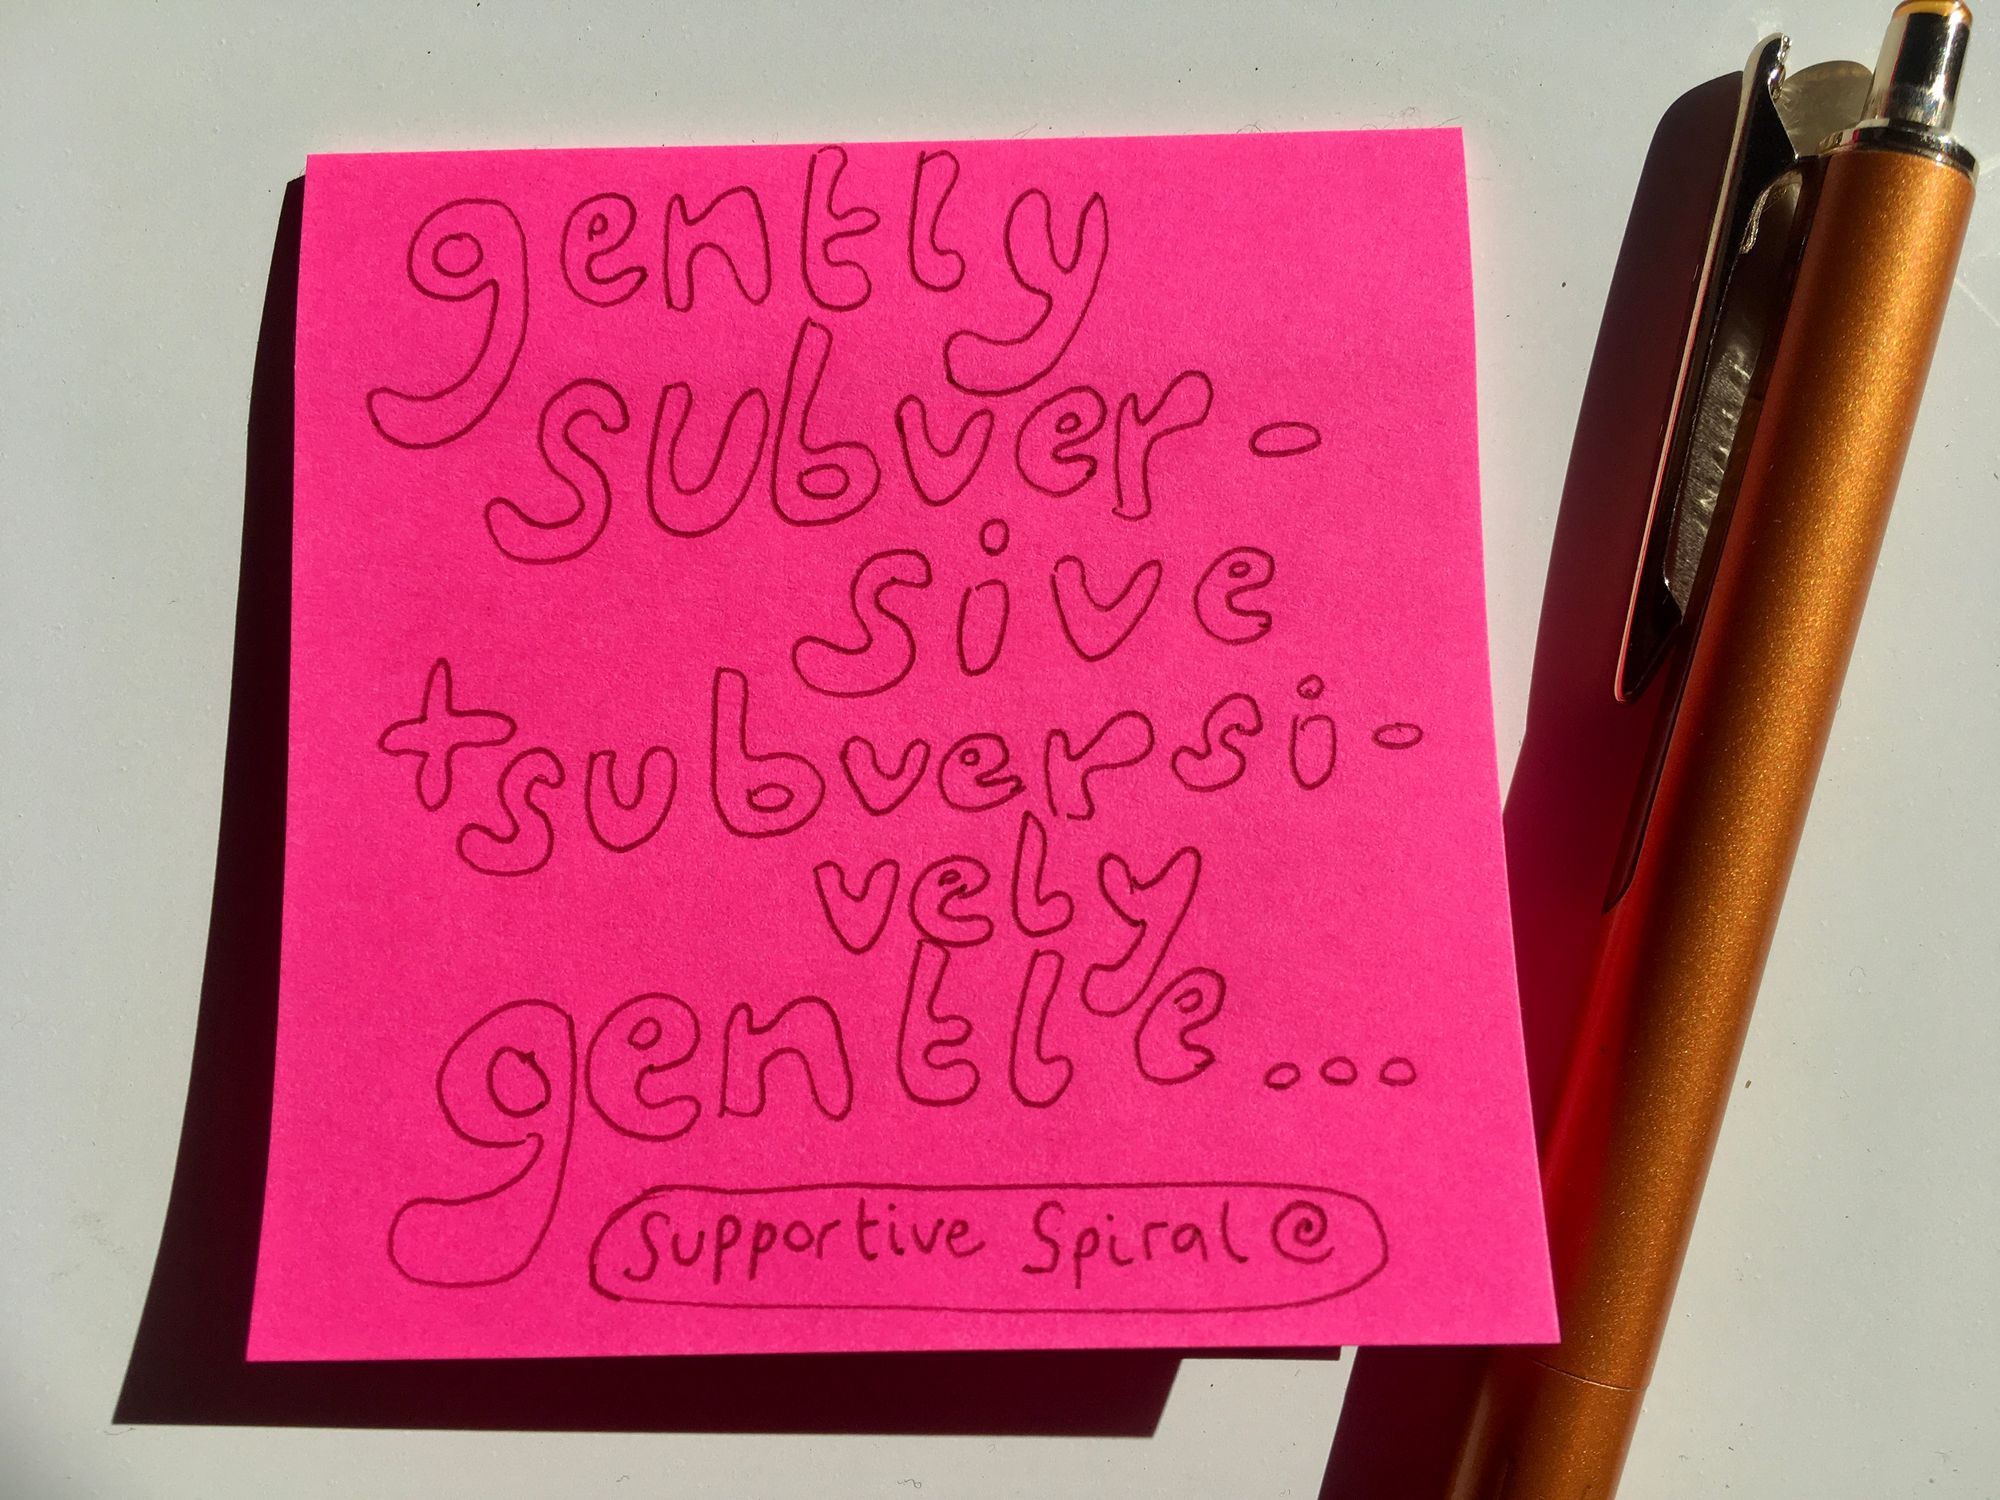 gently
subver-
sive
+subversi-
vely
gentle...
Supportive Spiral